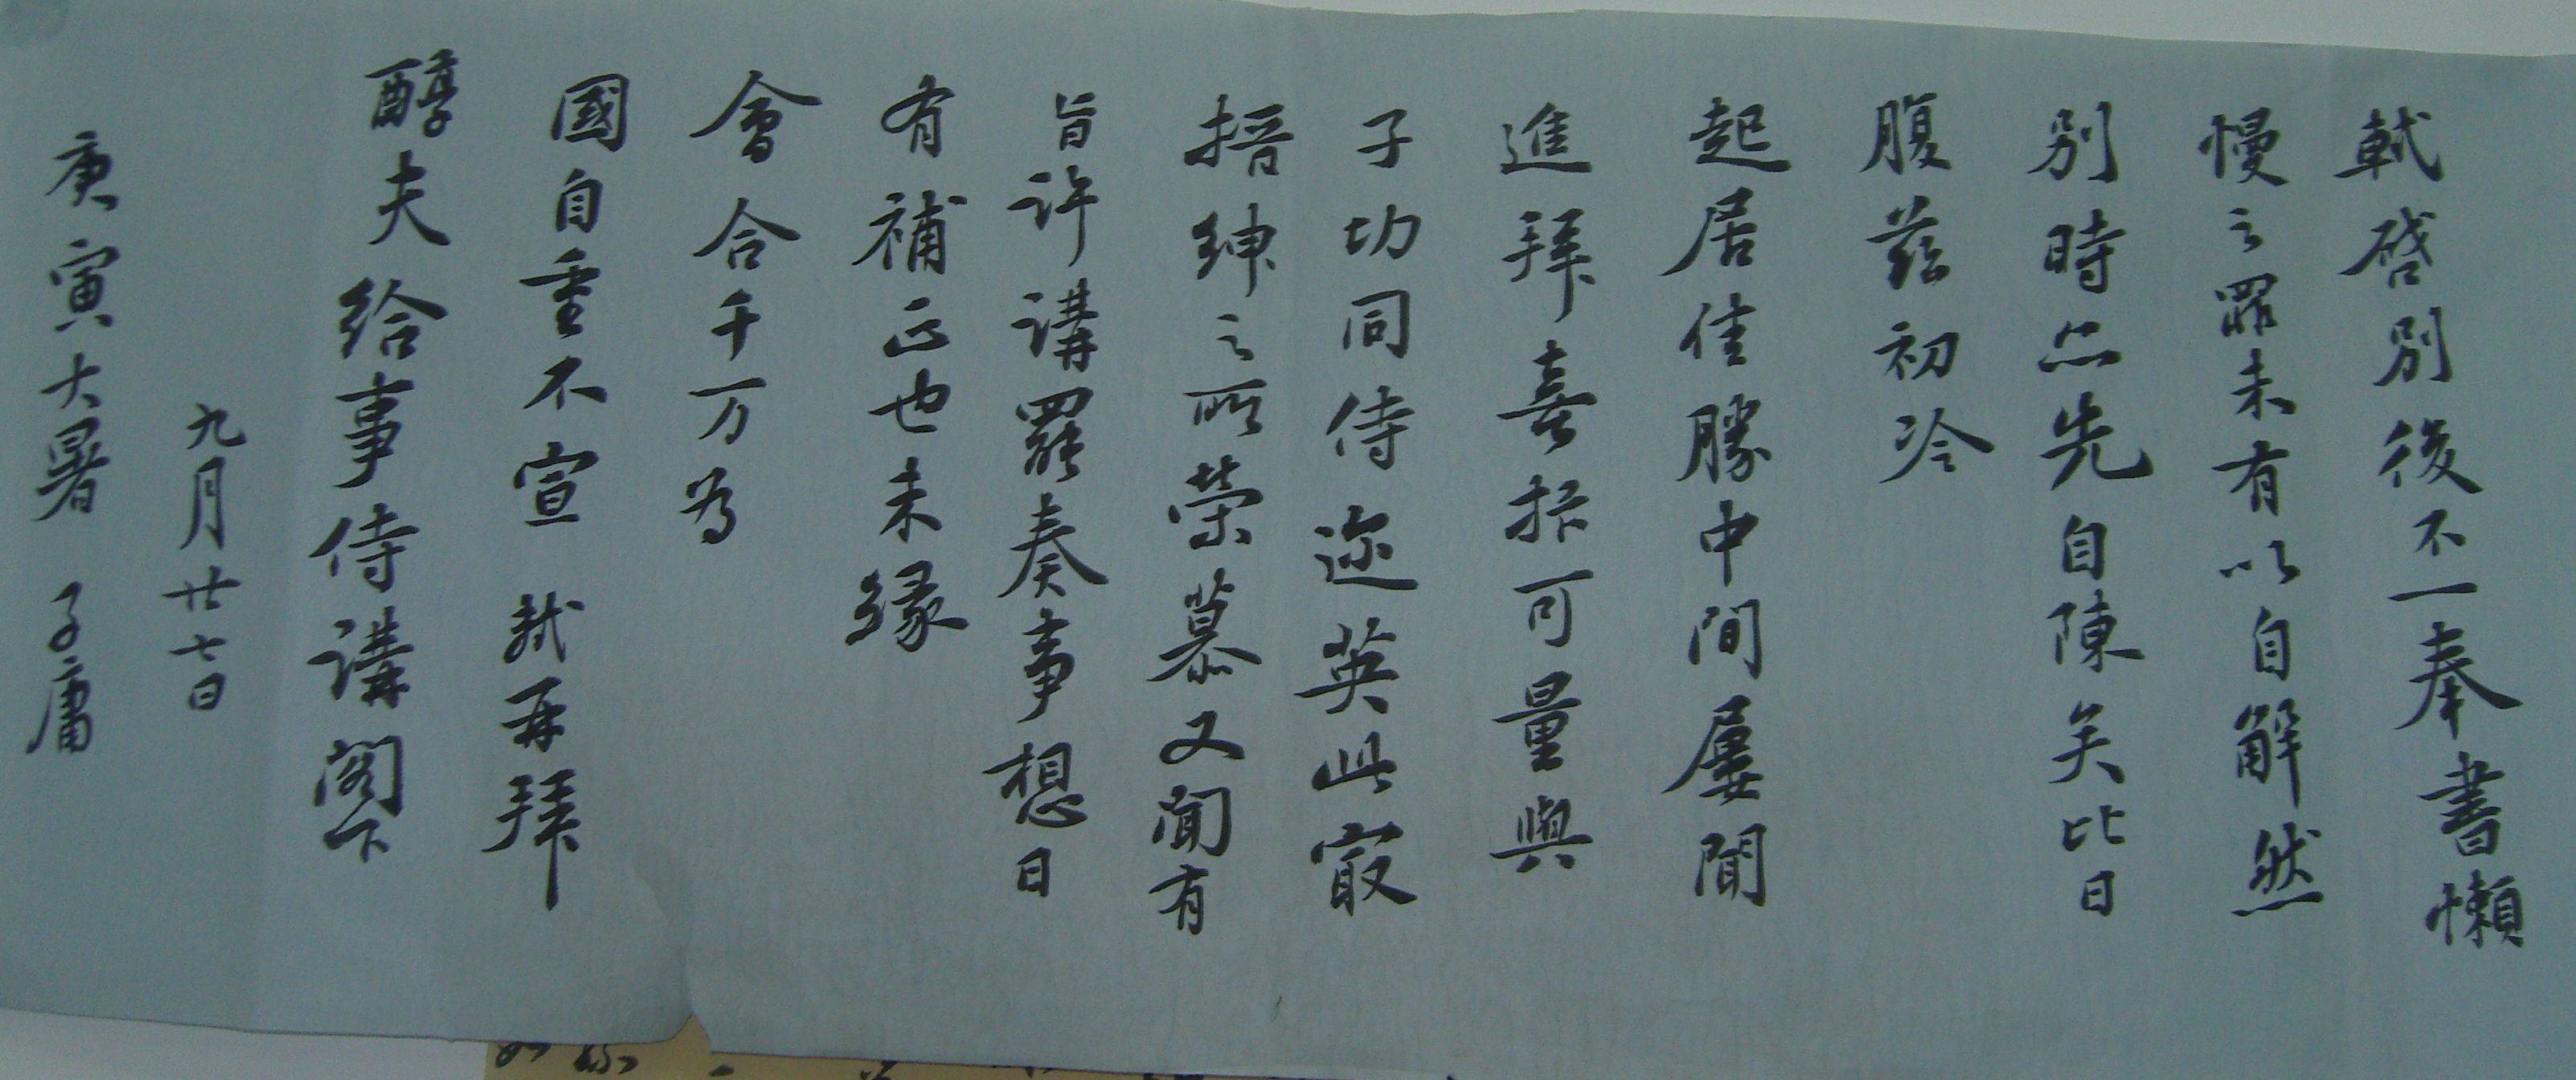 軾啓別後不一奉書懶
慢之罪未有以自解然
別時亦先自陳矣比日
腹兹初冷
起居佳勝中間屢聞
進拜喜抃可量與
子功同侍迩英此㝡
搢紳之所榮慕又聞有
旨許講罷奏事想日
有補正也未緣
會合千万为
國自重不宣 軾再拜
醇夫給事侍講閣下
九月廿七日
庚寅大暑 子庸